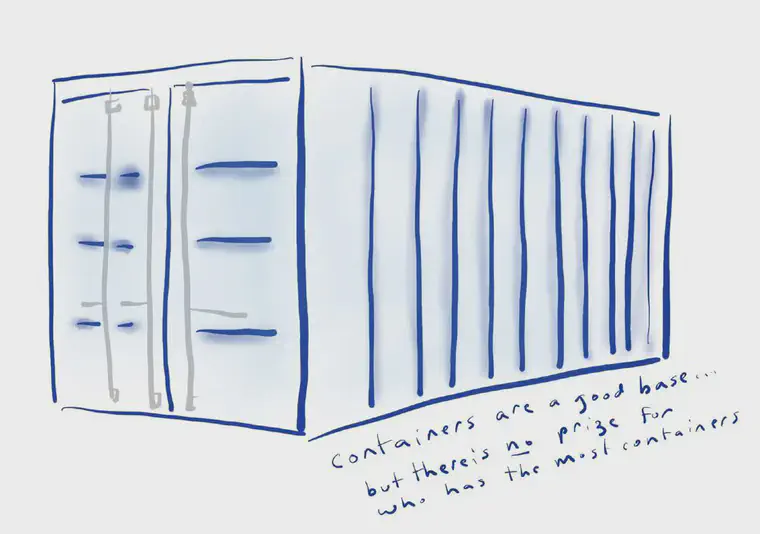 containers are a good base...
but there is no prize for
who has the most containers